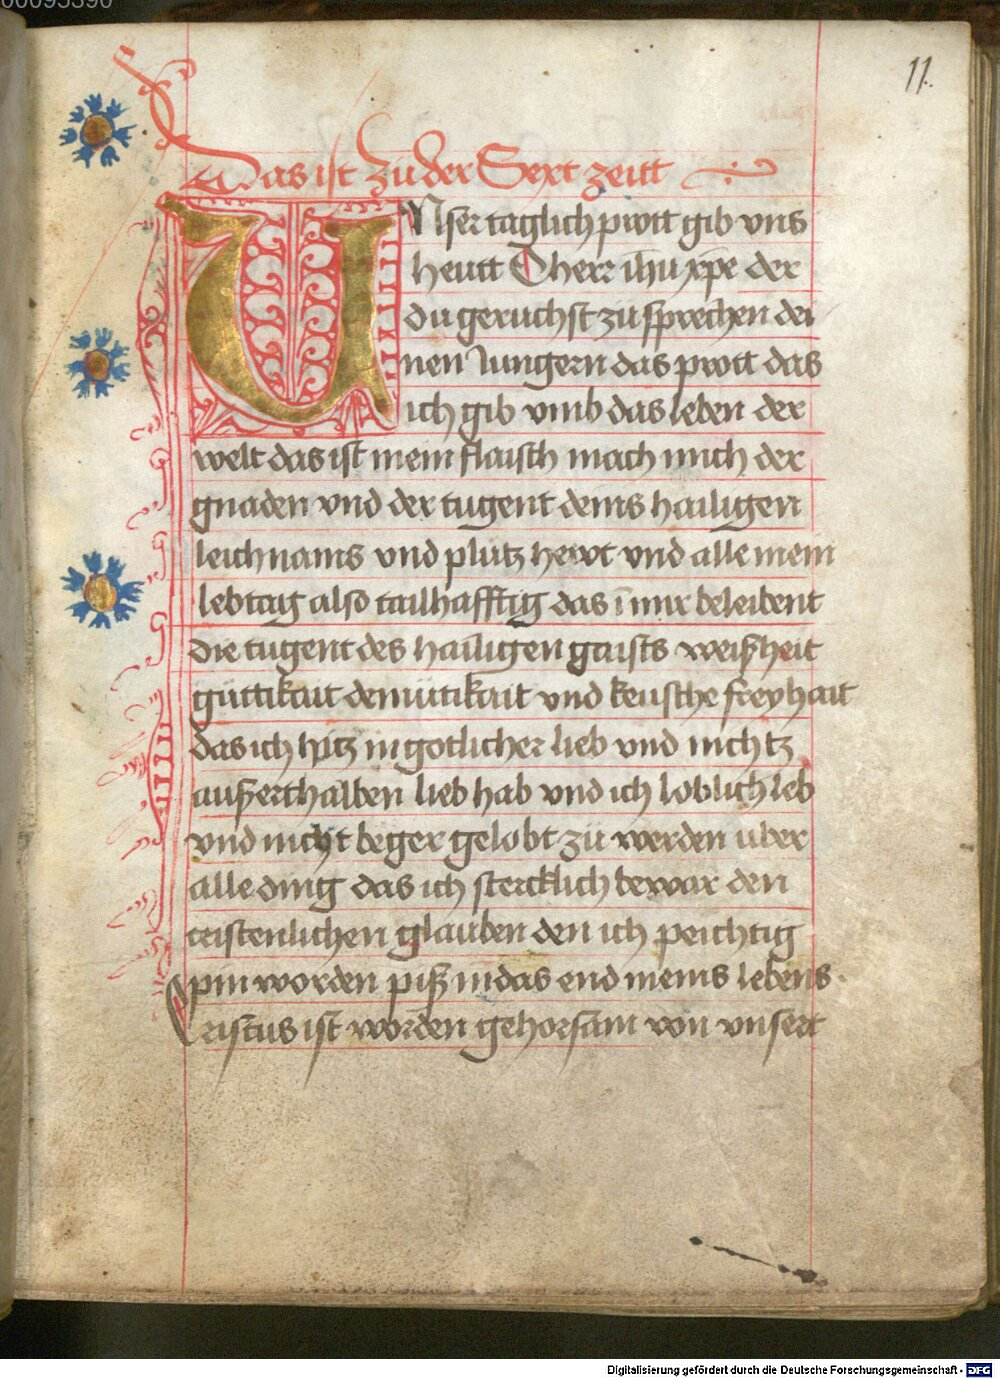 00095390
11.
Das ist zu der Sext zeitt
UNser taglich prott gib vns
heutt O herr ihu xpe der
du geruchst zu sprechen dei
nen Jungern das prott das
ich gib vmb das leben der
welt das ist mein flaisch mach mich der
gnaden vnd der tugent deins hailigen
leichnams vnd plutz hewt vnd alle mein
lebtag also tailhafftig das i mir beleibent
die tugent des hailigen gaists weißheit
güttikait demütikait vnd keusche freyhait
das ich hitz in gotlicher lieb vnd nichtz
außerthalben lieb hab vnd ich loblich leb
vnd nicht beger gelobt zü werden über
alle ding das ich stercklich bewar den
cristenlichen glauben den ich peichtig
pin worden piß in das end meins lebens
Cristus ist worden gehorsam von vnsert
Digitalisierung gefördert durch die Deutsche Forschungsgemeinschaft - DFG